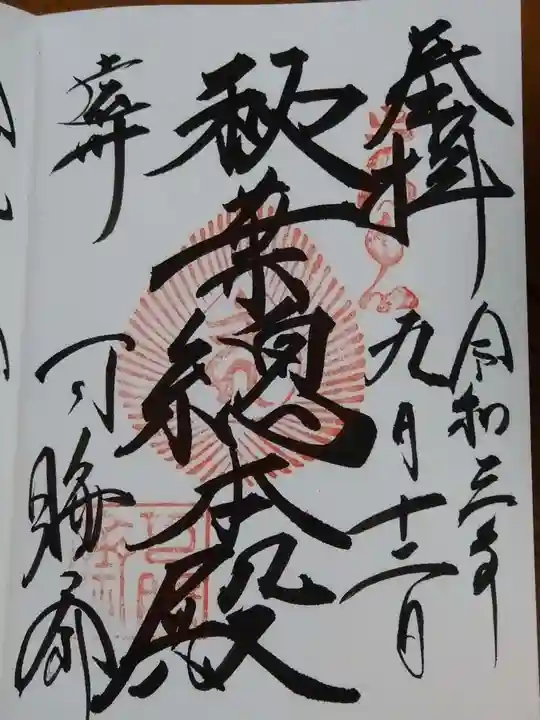 奉拝
令和三年
九月十二日
秋葉總本殿
可睡斎